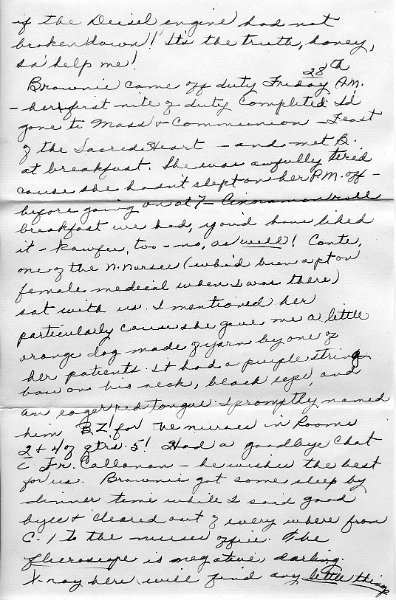 if the Deisel engine had not
broken down! It's the truth, honey,
so' help me!
Brownie came off duty Friday 28th A.M.
- her first nite of duty completed. I'd
gone to Mass & Communion - Feast
of the Sacred Heart - and met B.
at breakfast. She was awfully tired
cause she hadn't slept on her P.M. off -
before going on at 7 - Cinnamon roll
breakfast we had, you'd have liked
it - kawfee, too - no, as well! Conte,
one of the N. Nurses (who'd been apt on
female medical when I was there)
sat with us. I mentioned her
particularly cause she gave me a little
orange dog made of yarn by one of
her patients. it had a purple string
bow on his neck, black eyes, and
an eager red tongue. I promptly named
him BZ for 've nurses in Rooms
2 & 4 of qtrs. 5! Had a goodbye chat
c Fr. Callanan - he wishes the best
for us. Brownie got some sleep by
dinner time while I said good
byes & cleared out of every where from
C. 1 to the nurses office. The
fluoroscope is negative, darling.
X-ray here will find any little things